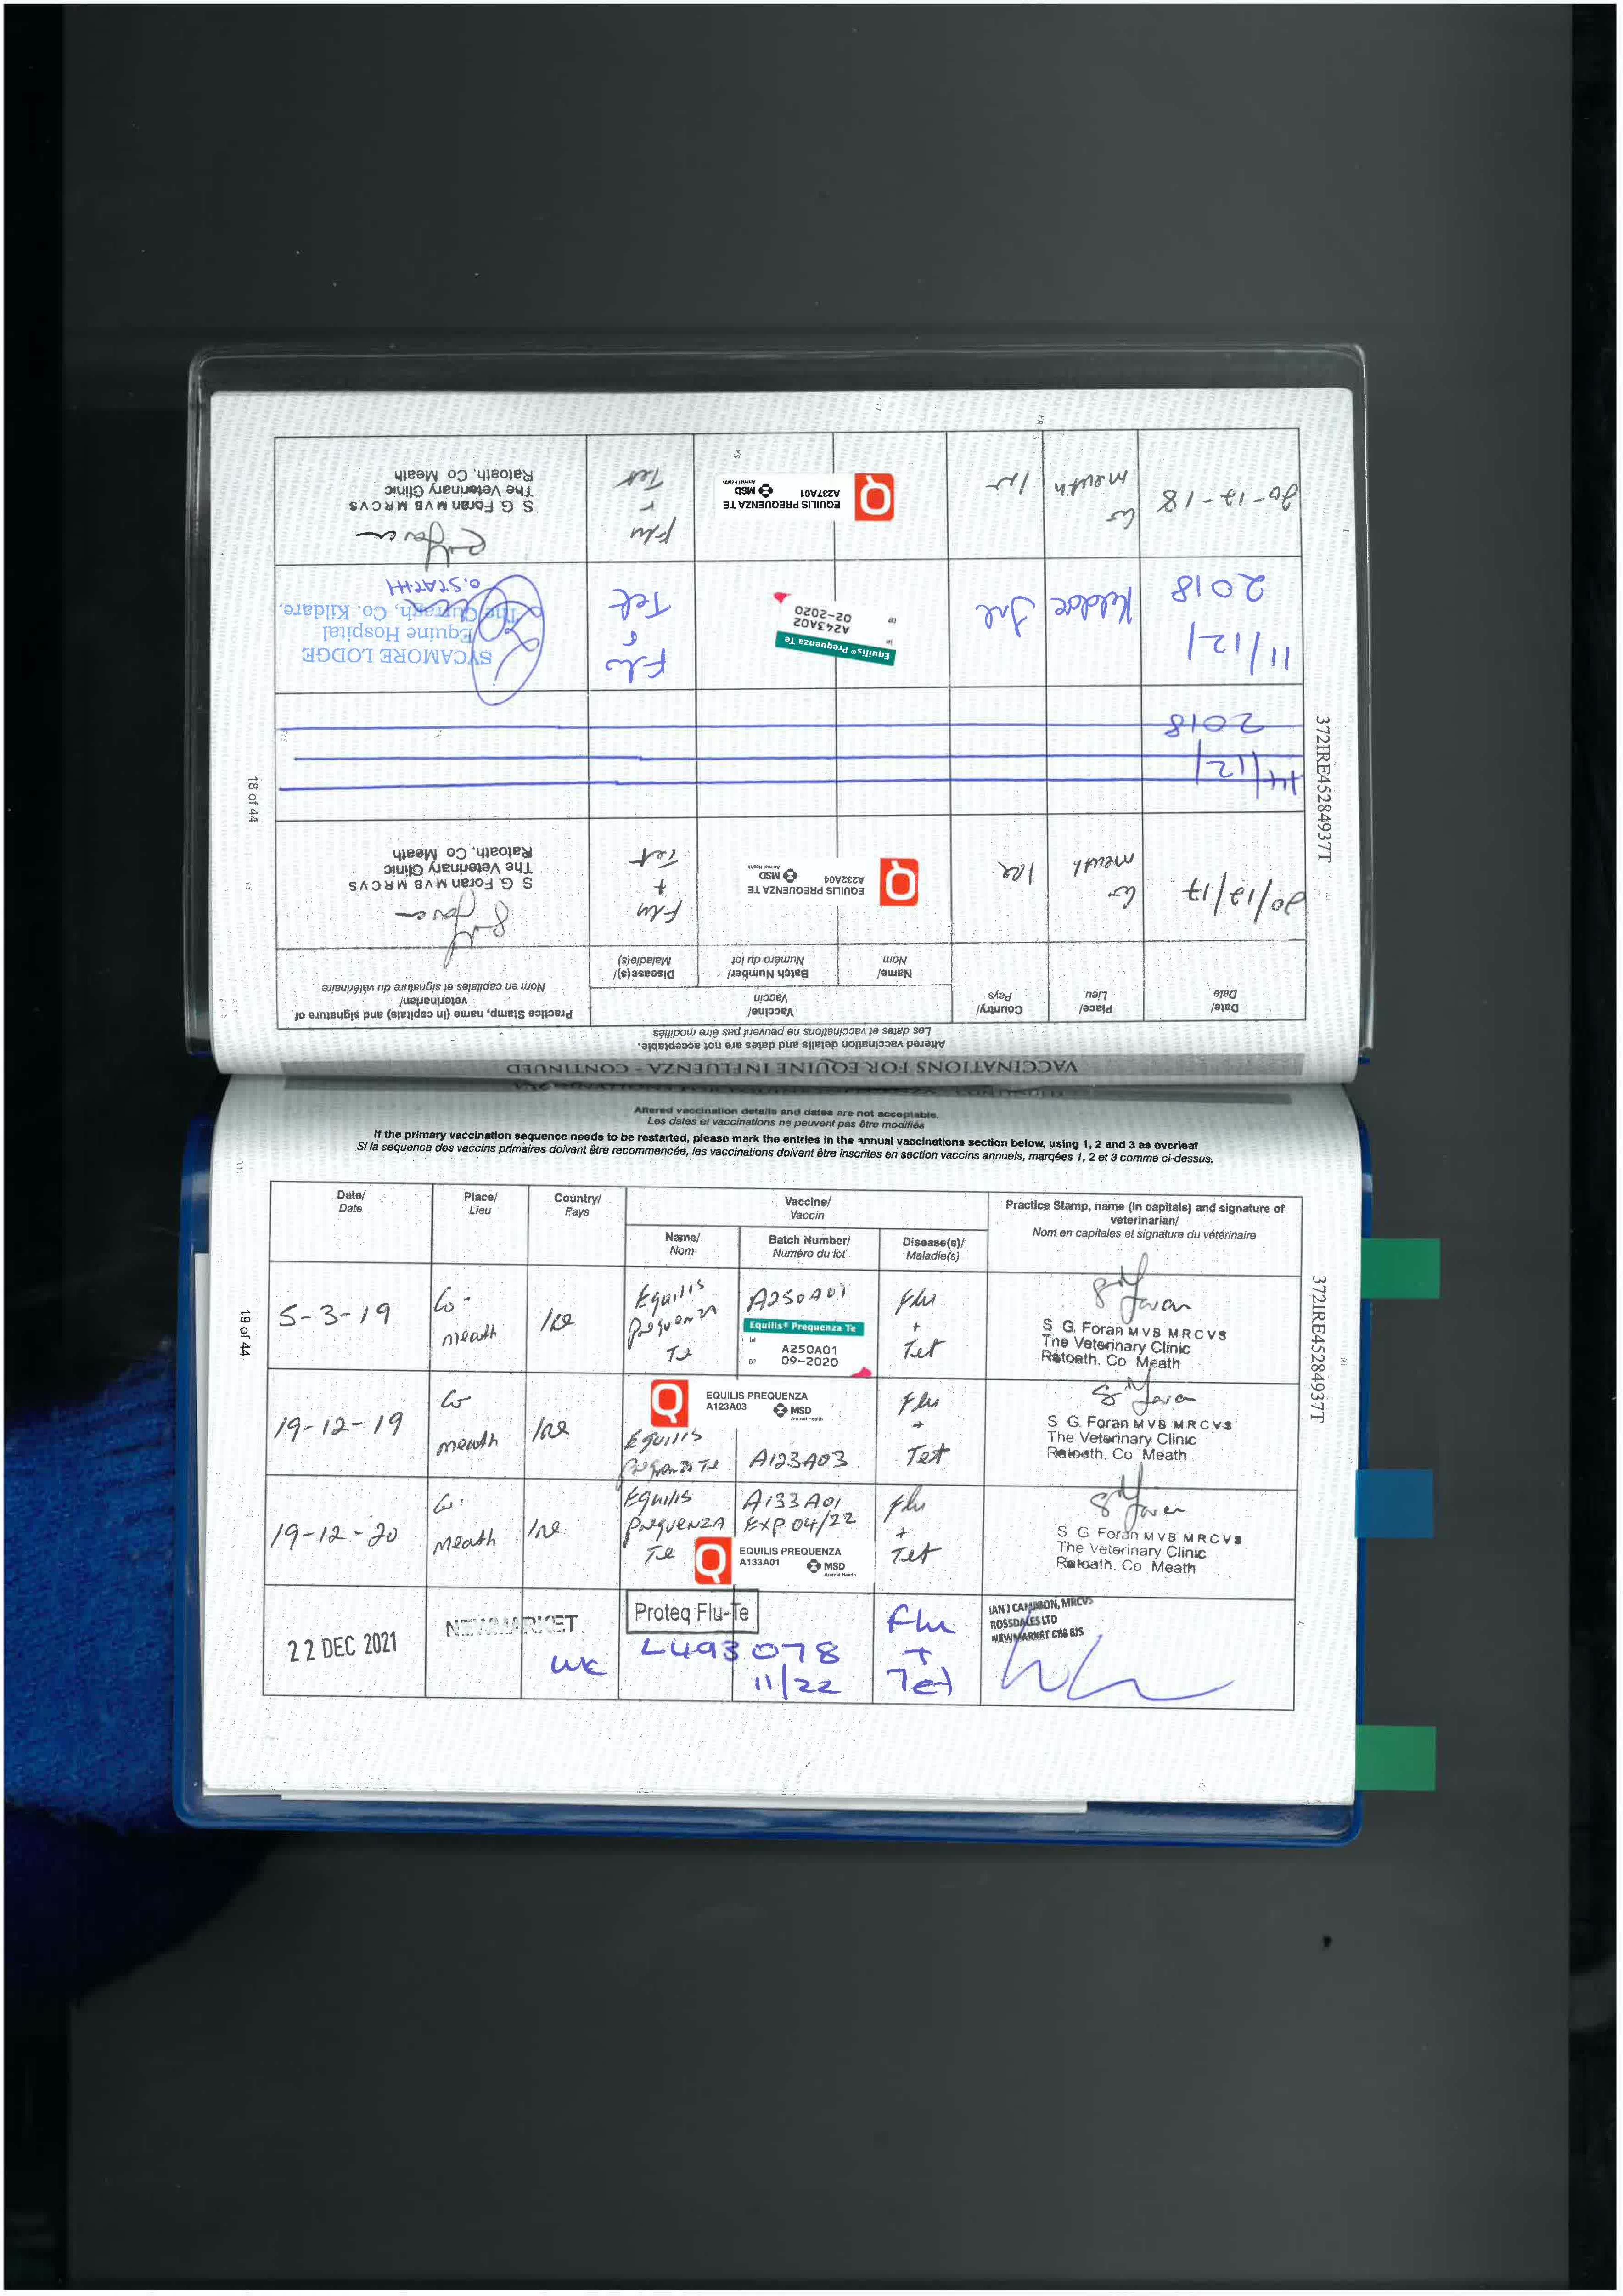 VACCINATIONS FOR EQUINE INFLUENZA - CONTINUED
Altered vaccination details and dates are not acceptable.
Les dates et vaccinations ne peuvent pas être modifiés
Date/
Date
Place/
Lieu
Country/
Pays
Vaccine/
Vaccin
Name/
Nom
Batch Number/
Numéro du lot
Disease(s)/
Maladie(s)
Practice Stamp, name (in capitals) and signature of
veterinarian/
Nom en capitales et signature du vétérinaire
20/12/17
Co
Meath
Ire
EQUILIS PREQUENZA TE
A232A04
MSD
Animal Health
Flu
+
Tet
S G. Foran MVB MRCVS
The Veterinary Clinic
Ratoath. Co Meath
14/12/
2018
11/12/
2018
Kildare
Ire
Equilis® Prequenza Te
A243A02
02-2020
Flu
Tet
SYCAMORE LODGE
Equine Hospital
The Curragh, Co. Kildare.
O. STATHI
20-12-18
Co
Meath
Ire
EQUILIS PREQUENZA TE
A237A01
MSD
Animal Health
Flu
+
Tet
S G. Foran MVB MRCVS
The Veterinary Clinic
Ratoath. Co Meath
372IRE45284937T
18 of 44
Altered vaccination details and dates are not acceptable.
Les dates et vaccinations ne peuvent pas être modifiés
If the primary vaccination sequence needs to be restarted, please mark the entries in the annual vaccinations section below, using 1, 2 and 3 as overleaf
Si la sequence des vaccins primaires doivent être recommencée, les vaccinations doivent être inscrites en section vaccins annuels, marqées 1, 2 et 3 comme ci-dessus.
Date/
Date
Place/
Lieu
Country/
Pays
Vaccine/
Vaccin
Name/
Nom
Batch Number/
Numéro du lot
Disease(s)/
Maladie(s)
Practice Stamp, name (in capitals) and signature of
veterinarian/
Nom en capitales et signature du vétérinaire
5-3-19
Co.
Meath
Ire
Equilis
Prequenza
Te
A250A01
Equilis® Prequenza Te
Lot
A250A01
09-2020
Flu
+
Tet
S G. Foran MVB MRCVS
The Veterinary Clinic
Ratoath. Co Meath
19-12-19
Co
Meath
Ire
EQUILIS PREQUENZA
A123A03
MSD
Animal Health
Equilis
Prequenza Te
A123A03
Flu
+
Tet
S G. Foran MVB MRCVS
The Veterinary Clinic
Ratoath. Co Meath
19-12-20
Co.
Meath
Ire
Equilis
Prequenza
Te
A133A01
EXP 04/22
EQUILIS PREQUENZA
A133A01
MSD
Animal Health
Flu
+
Tet
S G Foran MVB MRCVS
The Veterinary Clinic
Ratoath. Co Meath
22 DEC 2021
NEWMARKET
UK
Proteq Flu-Te
L493078
11/22
Flu
+
Tet
IAN J CAMERON, MRCVS
ROSSDALES LTD
NEWMARKET CB8 8JS
372IRE45284937T
19 of 44